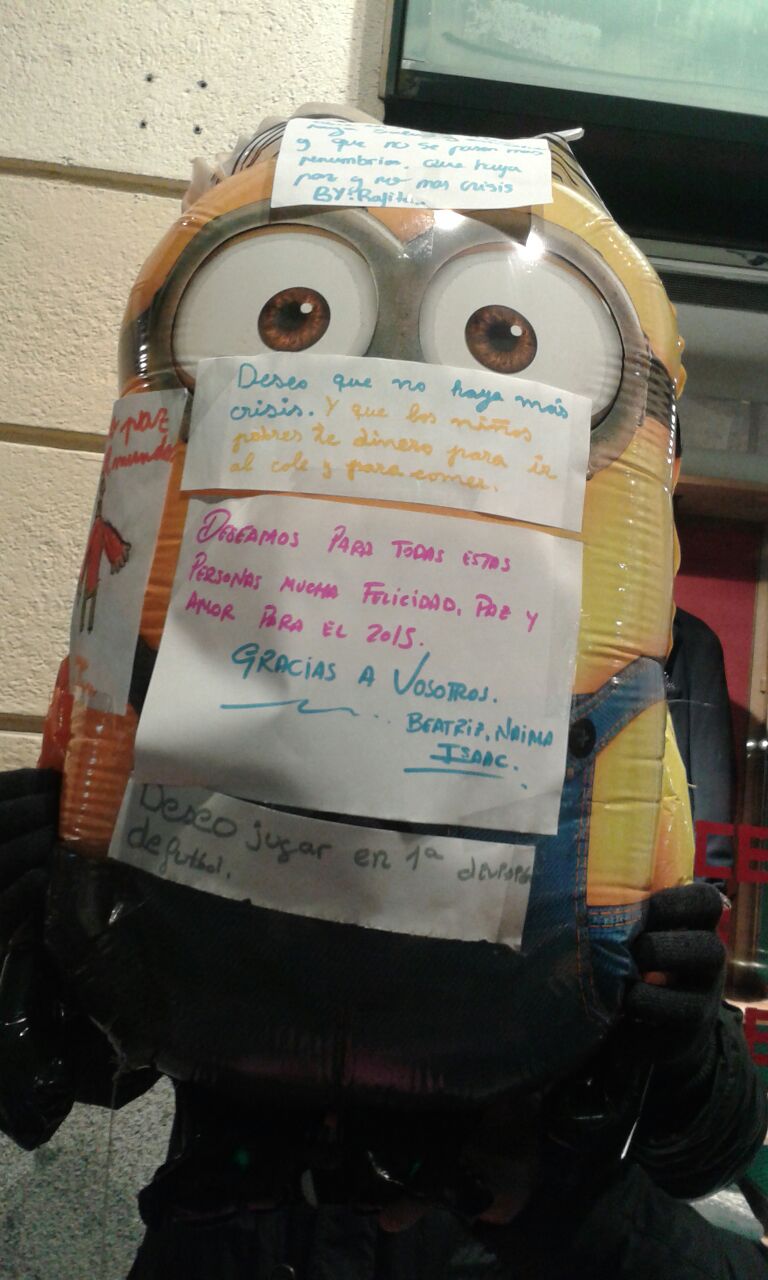 y que no se pasen más
penumbria. Que haya
paz y no mas crisis
BY:
Deseo que no haya más
crisis. Y que los niños
pobres te dinero para ir
al cole y para comer.
paz
mundo
DESEAMOS PARA TODAS ESTAS
PERSONAS MUCHA FELICIDAD, PAZ Y
AMOR PARA EL 2015.
GRACIAS A VOSOTROS.
BEATRIZ, NAIMA
ISAAC.
Deseo jugar en 1ª
de futbol.